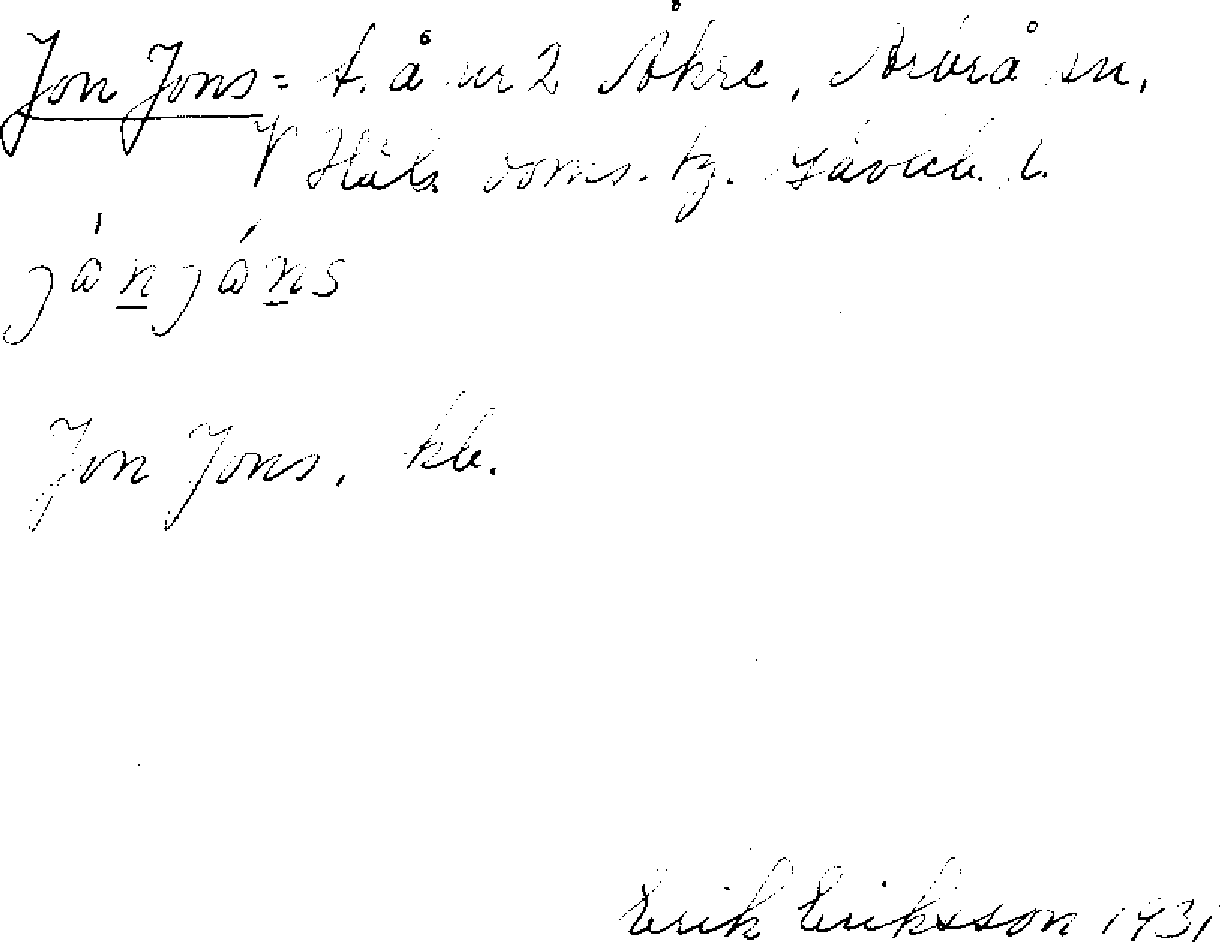 Jon Jons = t. å nr 2 Åkre, Arbrå sn,
V Häls doms. tg. Gävleb. l.
jånjåns
Jon Jons, kb.
Erik Eriksson 1931